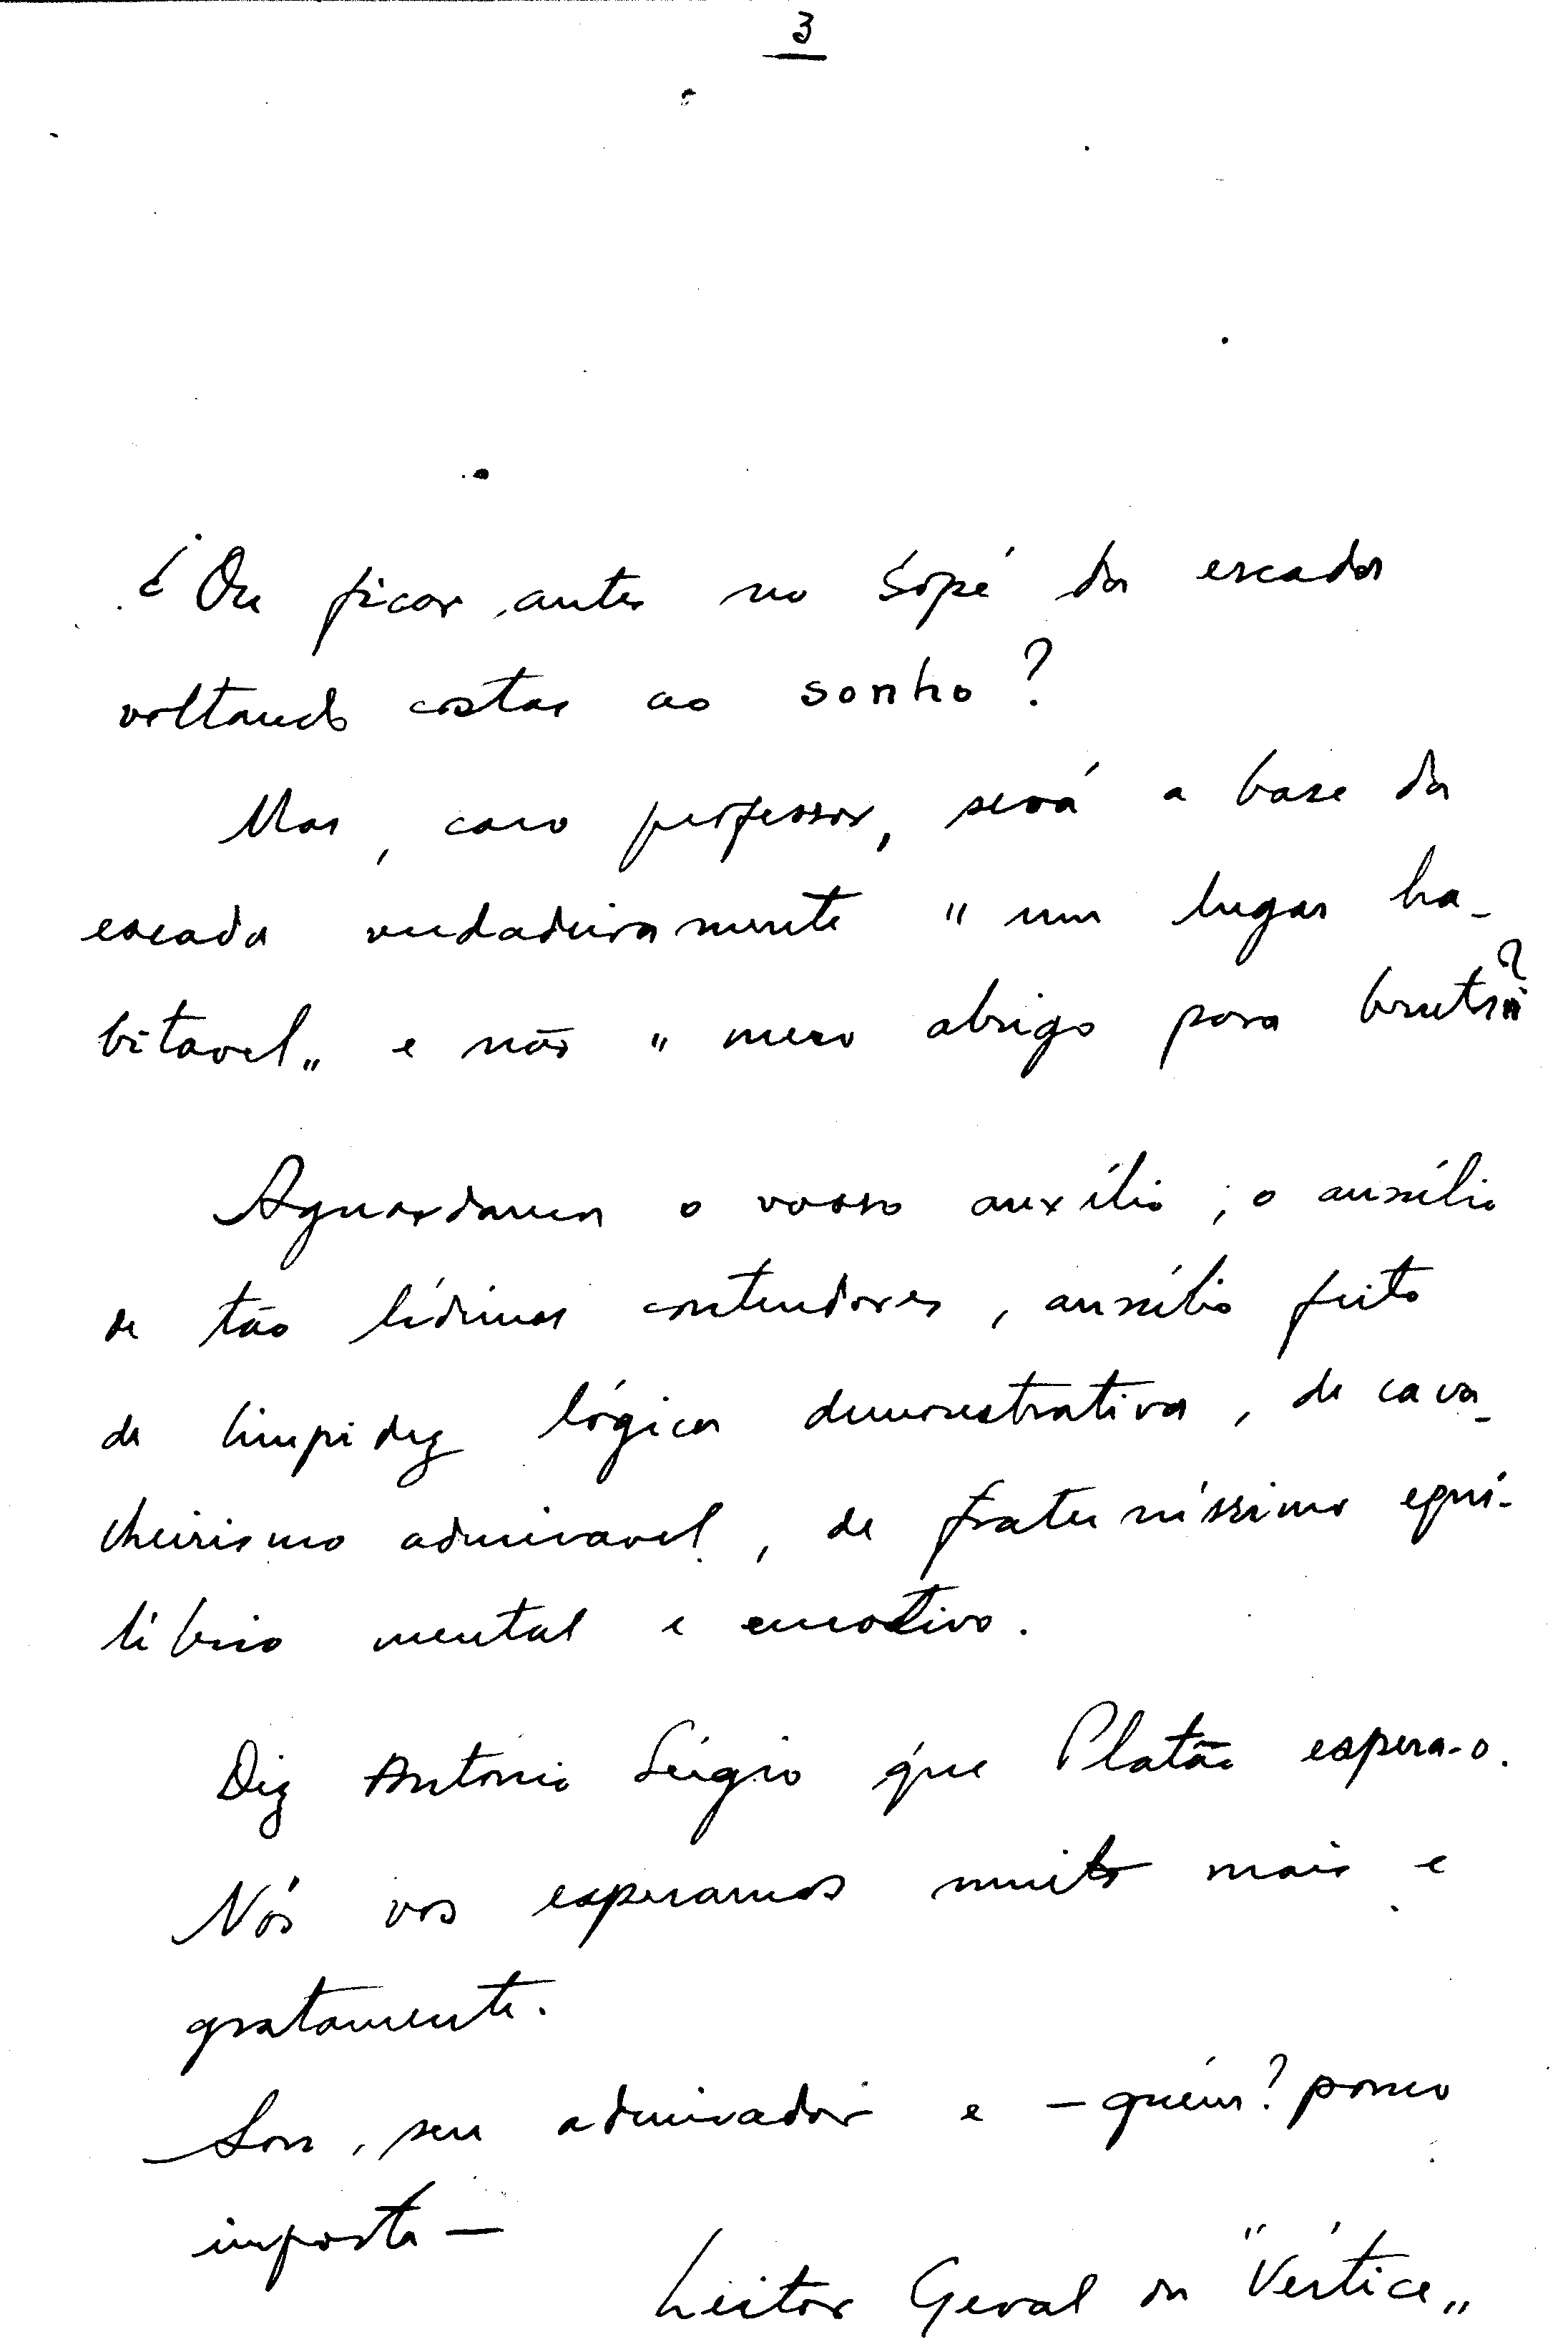 3
¿Ou ficar antes no sopé da escada
voltando costas ao sonho?
Mas, caro professor, será a base da
escada verdadeiramente "um lugar ha-
bitavel" e não "mero abrigo para brutos"?
Aguardamos o vosso auxílio; o auxílio
de tão lídimos contendores, auxílio feito
de limpidez lógica demonstrativa, de cava-
lheirismo admiravel, de fraterníssimo equi-
líbrio mental e emotivo.
Diz António Sérgio que Platão espera-o.
Nós vos esperamos muito mais e
gratamente.
Sou, seu admirador e — quém? pouco
importa —
Leitor Geral da "Vértice"